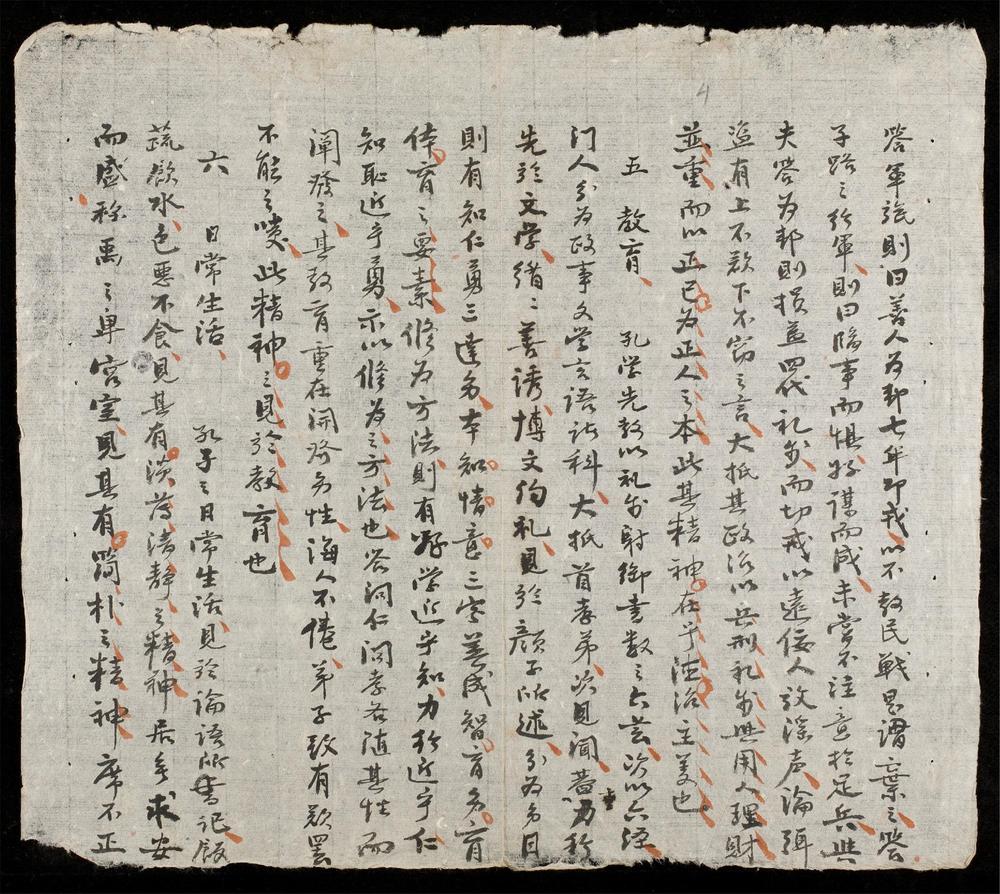 答軍旅則曰善人為邦七年即戎以不教民戰是謂棄之答
子路之行軍則曰臨事而懼好謀而成未嘗不注意於足兵與
夫答為邦則損益四代礼樂而切戒以遠佞人放滛声論弭
盗有上不欲下不窃之言大抵其政治以兵刑礼樂與用人理財
並重而以正己為正人之本此其精神在乎德治主义也
五 教育、 孔学先教以礼樂射御書数之六芸次以六経
门人分为政事文学言語諸科大抵首孝弟次見闻蓄力於
先於文学循々善誘博文約礼見於顔子所述分为多目
則有知仁勇三達多本知情意三字養成智育多育
体育之要素修为方法則有好学近乎知力行近乎仁
知恥近乎勇示以修为之方法也答问仁问孝各随其性而
阐發之其教育重在開發多性誨人不倦弟子致有欲罢
不能之嘆此精神之見於教育也
六 日常生活、 孔子之日常生活見於論語所書记飯
蔬飲水色悪不食見其有淡薄清静之精神居無求安
而盛称禹之卑宮室見其有简朴之精神席不正
4